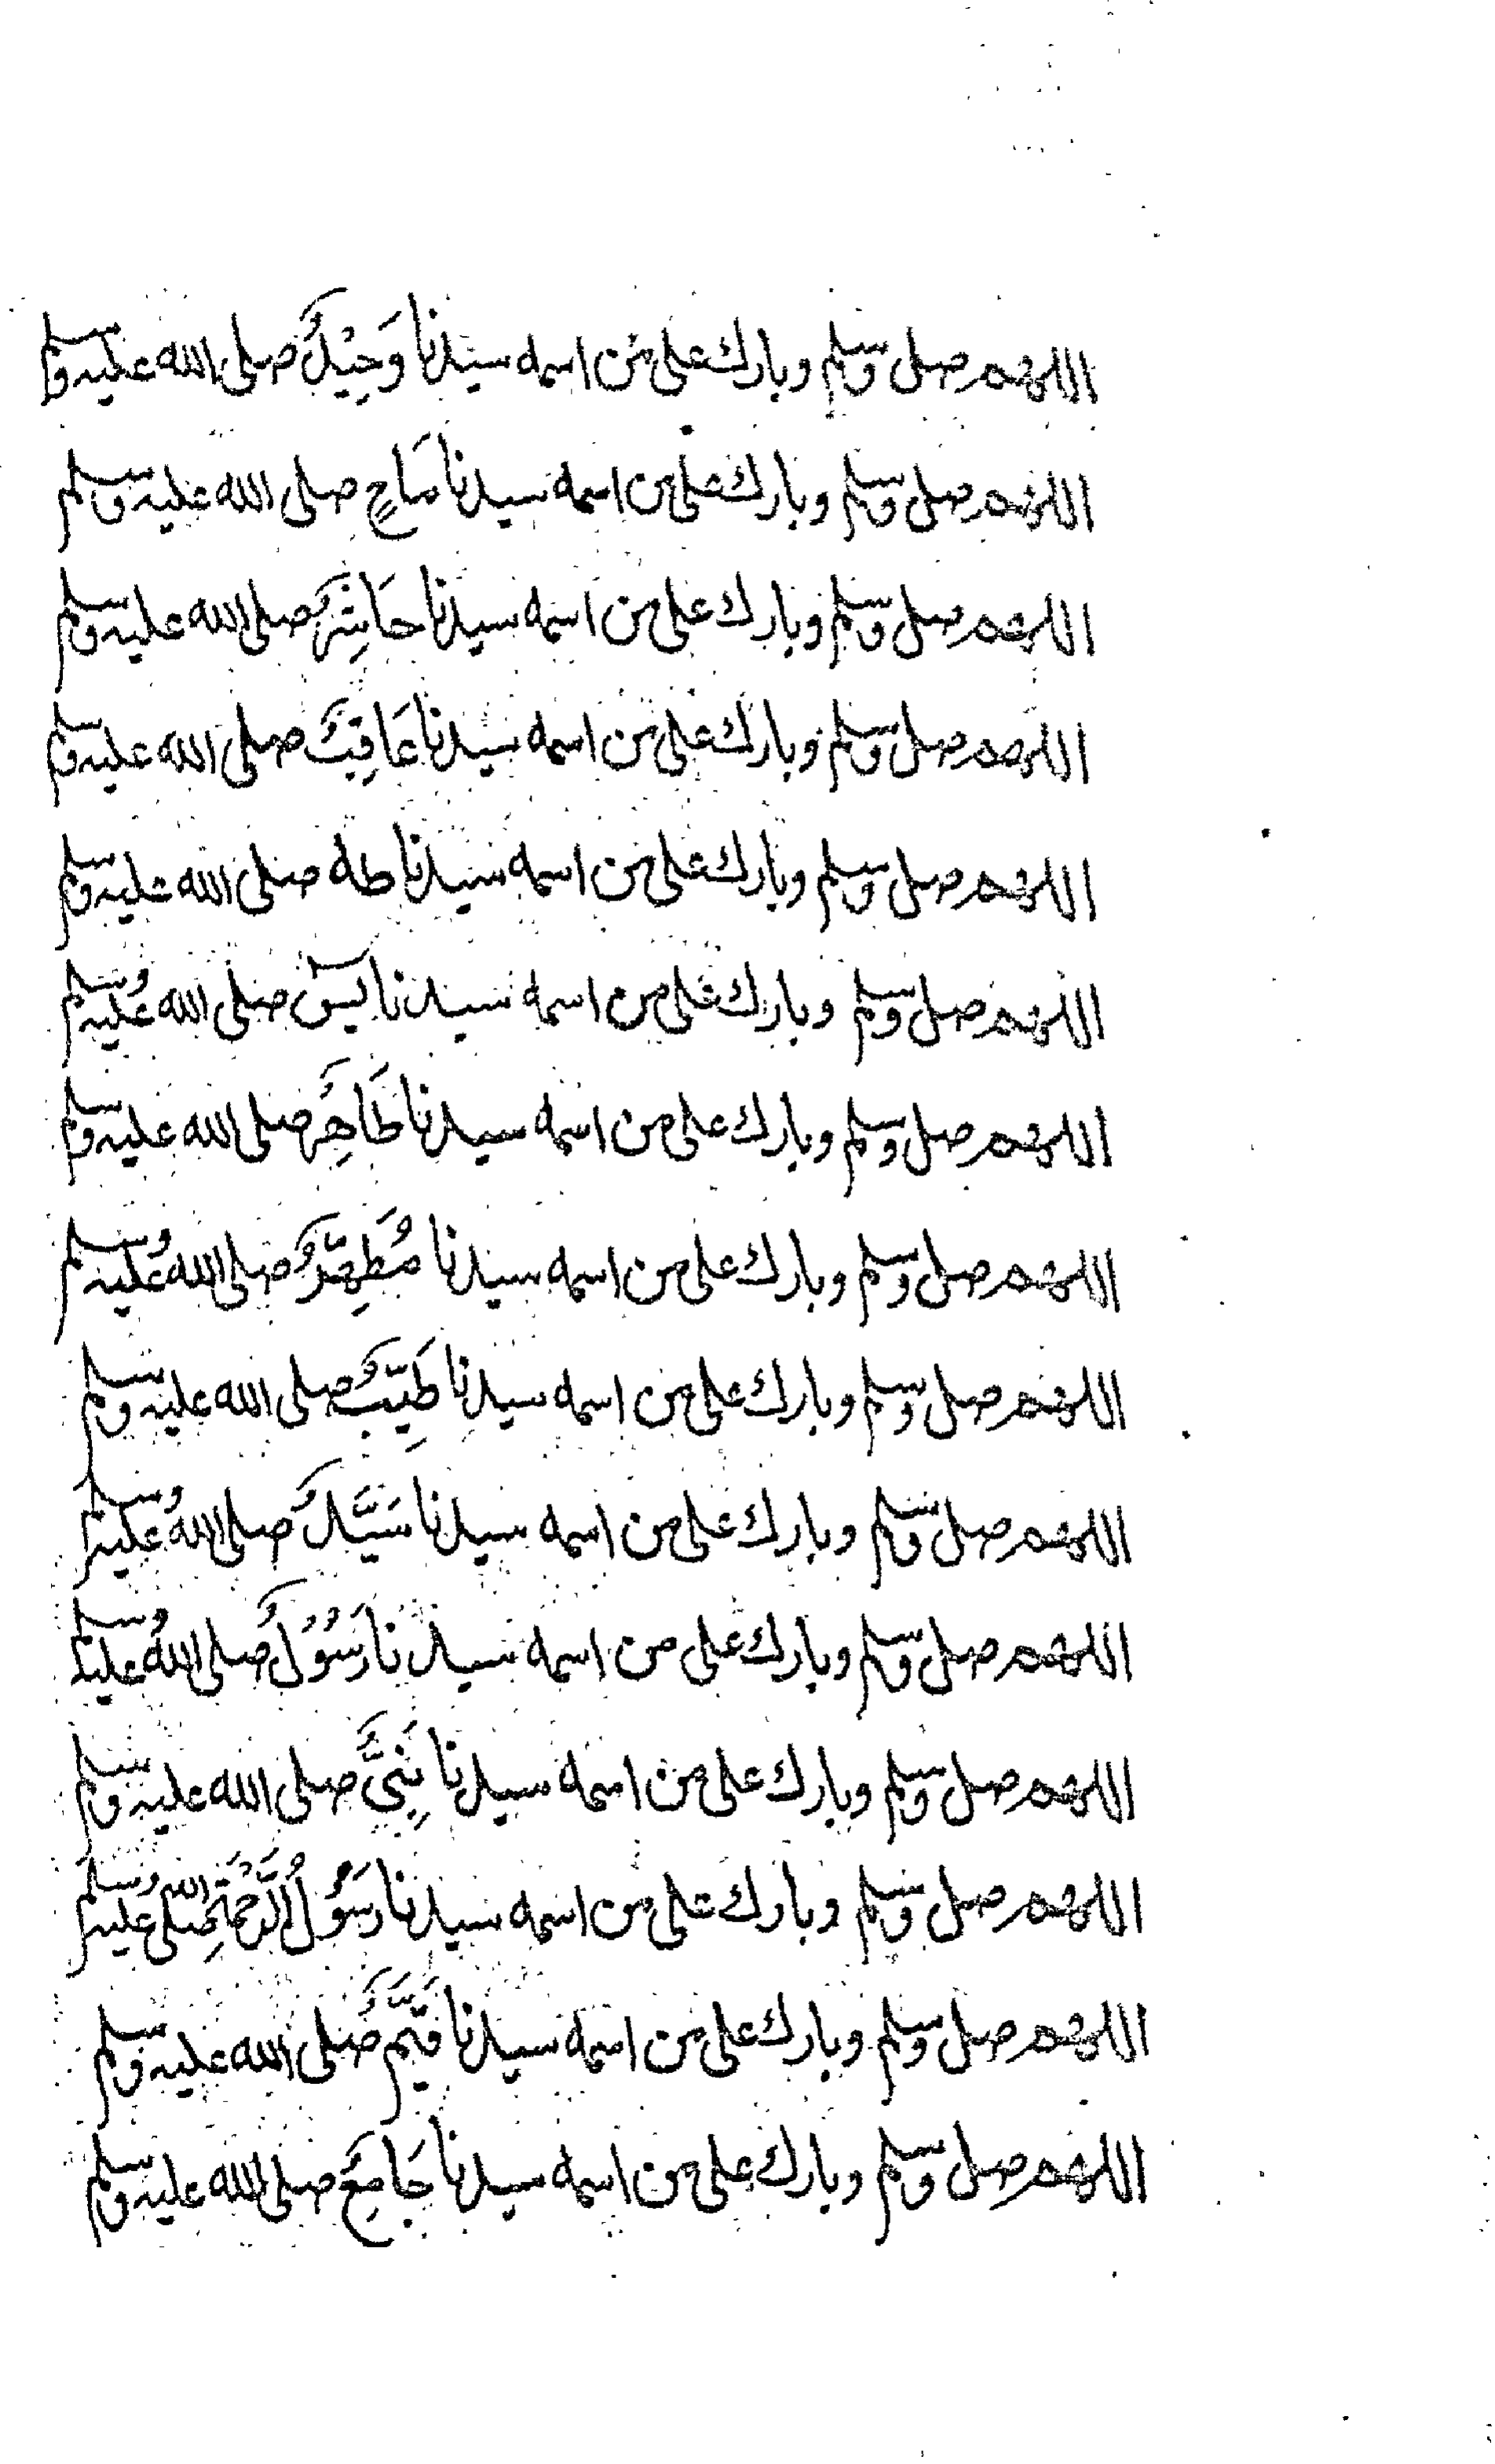 اللهم صل وسلم وبارك على من اسمه سيدنا وَحِيْدٌ صلى الله عليه وسلم
اللهم صل وسلم وبارك على من اسمه سيدنا مَاحٍ صلى الله عليه وسلم
اللهم صل وسلم وبارك على من اسمه سيدنا حَاشِرٌ صلى الله عليه وسلم
اللهم صل وسلم وبارك على من اسمه سيدنا عَاقِبٌ صلى الله عليه وسلم
اللهم صل وسلم وبارك على من اسمه سيدنا طه صلى الله عليه وسلم
اللهم صل وسلم وبارك على من اسمه سيدنا يسٓ صلى الله عليه وسلم
اللهم صل وسلم وبارك على من اسمه سيدنا طَاهِرٌ صلى الله عليه وسلم
اللهم صل وسلم وبارك على من اسمه سيدنا مُطَهِّرٌ صلى الله عليه وسلم
اللهم صل وسلم وبارك على من اسمه سيدنا طَيِّبٌ صلى الله عليه وسلم
اللهم صل وسلم وبارك على من اسمه سيدنا سَيَّدٌ صلى الله عليه وسلم
اللهم صل وسلم وبارك على من اسمه سيدنا رَسُوْلٌ صلى الله عليه وسلم
اللهم صل وسلم وبارك على من اسمه سيدنا نَبِيٌّ صلى الله عليه وسلم
اللهم صل وسلم وبارك على من اسمه سيدنا رَسُوْلُ الرَّحْمَةِ صلى الله عليه وسلم
اللهم صل وسلم وبارك على من اسمه سيدنا قَيَّمٌ صلى الله عليه وسلم
اللهم صل وسلم وبارك على من اسمه سيدنا جَامِعٌ صلى الله عليه وسلم